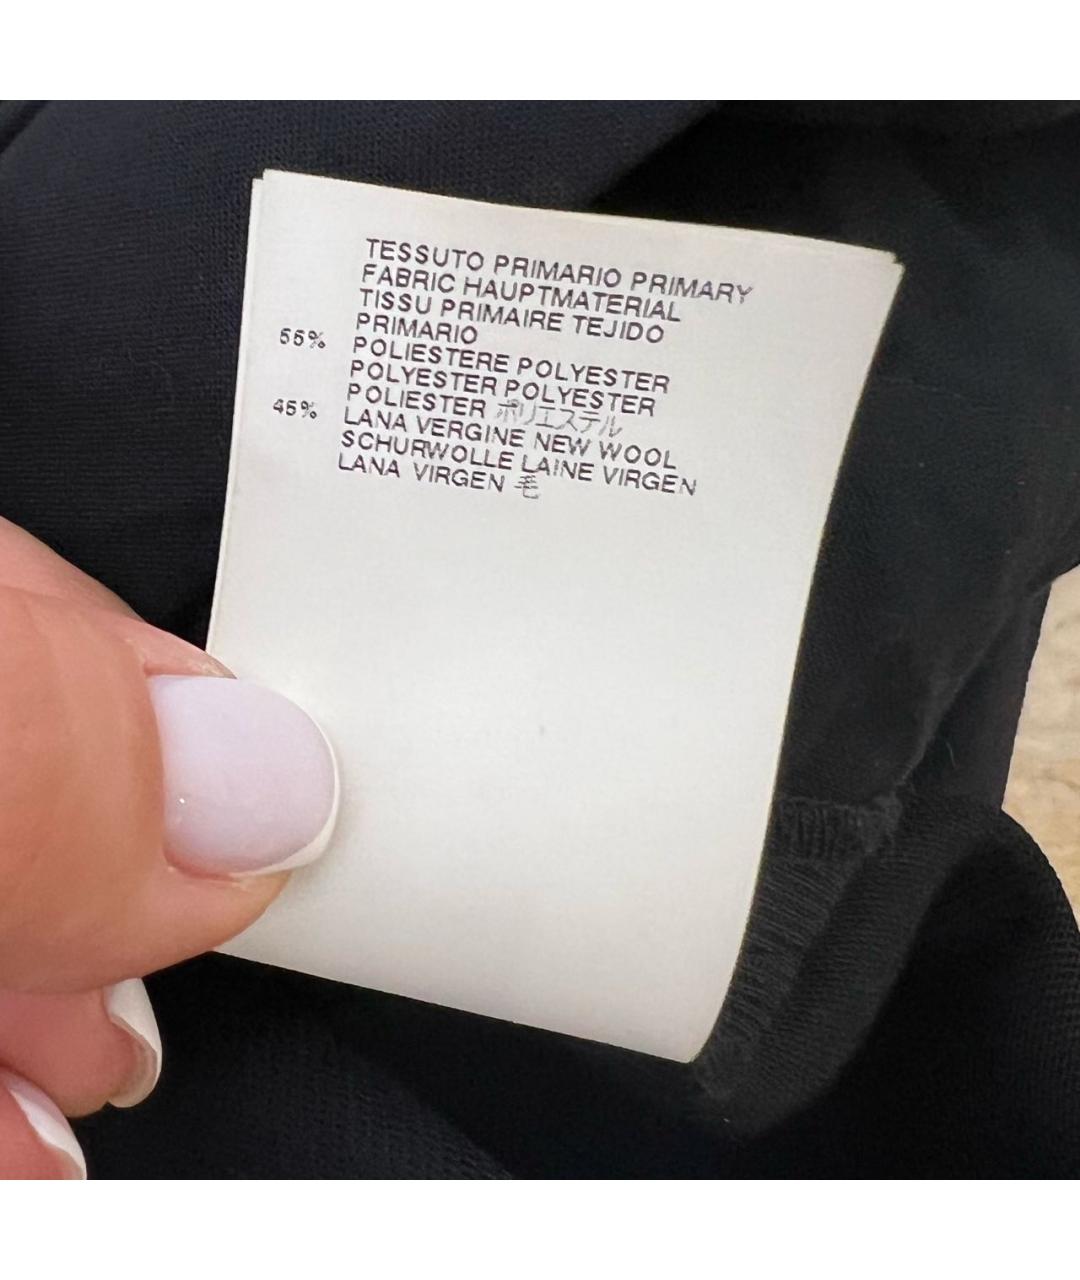 TESSUTO PRIMARIO PRIMARY
FABRIC HAUPTMATERIAL
TISSU PRIMAIRE TEJIDO
PRIMARIO
55% POLIESTERE POLYESTER
POLYESTER POLYESTER
POLIESTER ポリエステル
45% LANA VERGINE NEW WOOL
SCHURWOLLE LAINE VIRGEN
LANA VIRGEN 毛